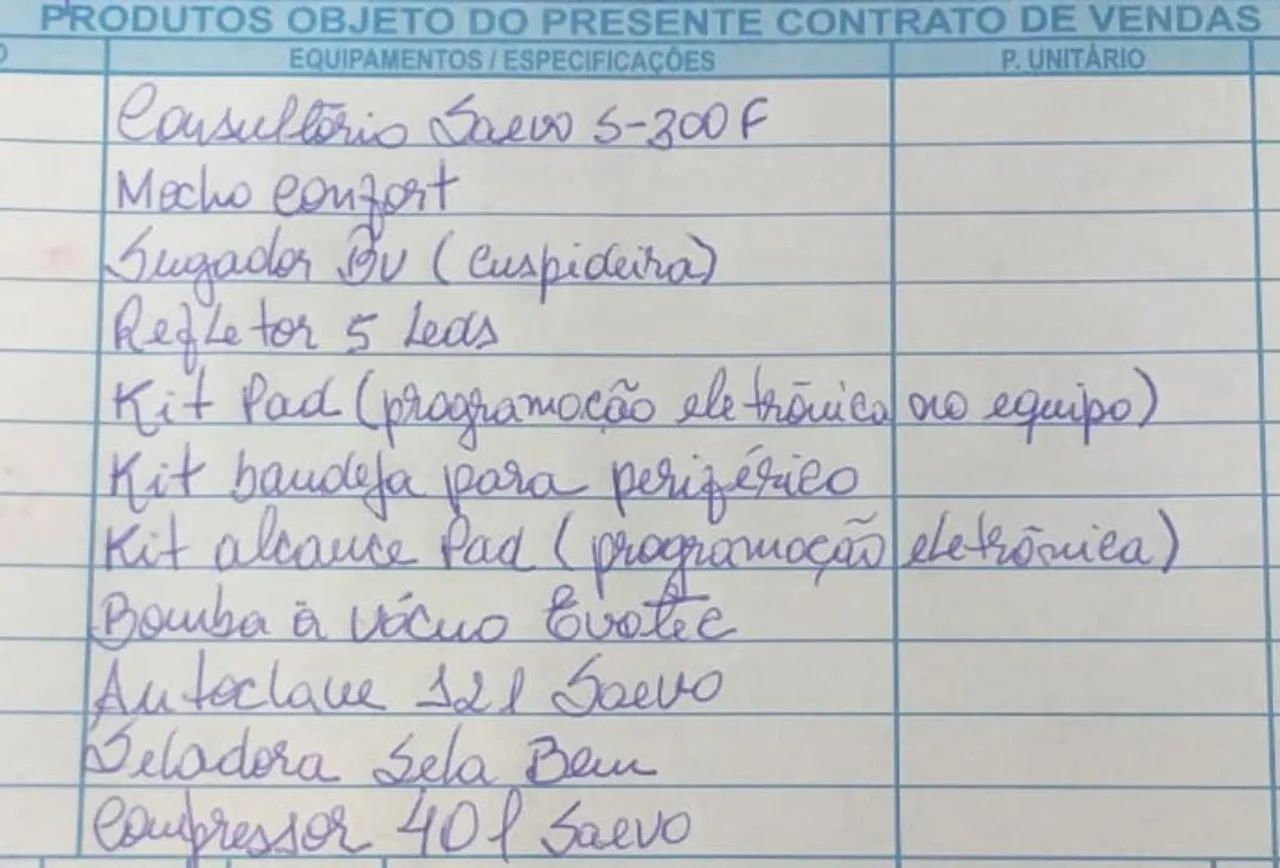 PRODUTOS OBJETO DO PRESENTE CONTRATO DE VENDAS
EQUIPAMENTOS / ESPECIFICAÇÕES P. UNITÁRIO
Consultório Saevo S-300 F
Mocho Confort
Sugador BV (Cuspideira)
Refletor 5 Leds
Kit Pad (programação eletrônica no equipo)
Kit bandeja para periférico
Kit alcance Pad (programação eletrônica)
Bomba à vácuo Evotec
Autoclave 12l Saevo
Seladora Sela Bem
Compressor 40l Saevo